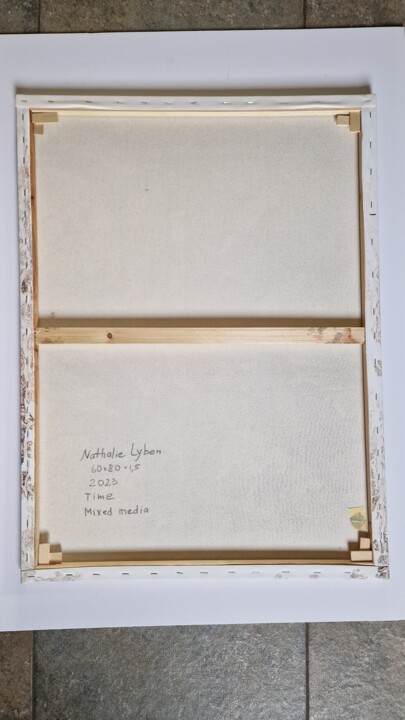 Nathalie Lyben
60×80×1,5
2023
Time
Mixed media